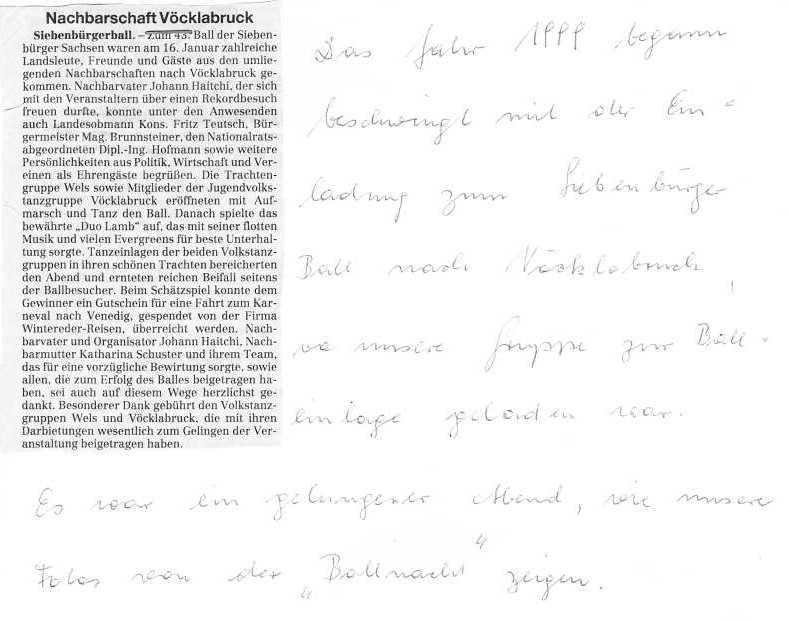 Nachbarschaft Vöcklabruck
Siebenbürgerball. – Zum 43. Ball der Sieben-
bürger Sachsen waren am 16. Januar zahlreiche
Landsleute, Freunde und Gäste aus den umlie-
genden Nachbarschaften nach Vöcklabruck ge-
kommen. Nachbarvater Johann Haitchi, der sich
mit den Veranstaltern über einen Rekordbesuch
freuen durfte, konnte unter den Anwesenden
auch Landesobmann Kons. Fritz Teutsch, Bür-
germeister Mag. Brunnsteiner, den Nationalrats-
abgeordneten Dipl.-Ing. Hofmann sowie weitere
Persönlichkeiten aus Politik, Wirtschaft und Ver-
einen als Ehrengäste begrüßen. Die Trachten-
gruppe Wels sowie Mitglieder der Jugendvolks-
tanzgruppe Vöcklabruck eröffneten mit Auf-
marsch und Tanz den Ball. Danach spielte das
bewährte „Duo Lamb“ auf, das mit seiner flotten
Musik und vielen Evergreens für beste Unterhal-
tung sorgte. Tanzeinlagen der beiden Volkstanz-
gruppen in ihren schönen Trachten bereicherten
den Abend und ernteten reichen Beifall seitens
der Ballbesucher. Beim Schätzspiel konnte dem
Gewinner ein Gutschein für eine Fahrt zum Kar-
neval nach Venedig, gespendet von der Firma
Wintereder-Reisen, überreicht werden. Nach-
barvater und Organisator Johann Haitchi, Nach-
barmutter Katharina Schuster und ihrem Team,
das für eine vorzügliche Bewirtung sorgte, sowie
allen, die zum Erfolg des Balles beigetragen ha-
ben, sei auch auf diesem Wege herzlichst ge-
dankt. Besonderer Dank gebührt den Volkstanz-
gruppen Wels und Vöcklabruck, die mit ihren
Darbietungen wesentlich zum Gelingen der Ver-
anstaltung beigetragen haben.
Das Jahr 1999 begann
beschwingt mit der Ein-
ladung zum Siebenbürger
Ball nach Vöcklabruck,
wo unsere Gruppe zur Ball-
einlage geladen war.
Es war ein gelungener Abend, wie unsere
Fotos von der „Ballnacht“ zeigen.